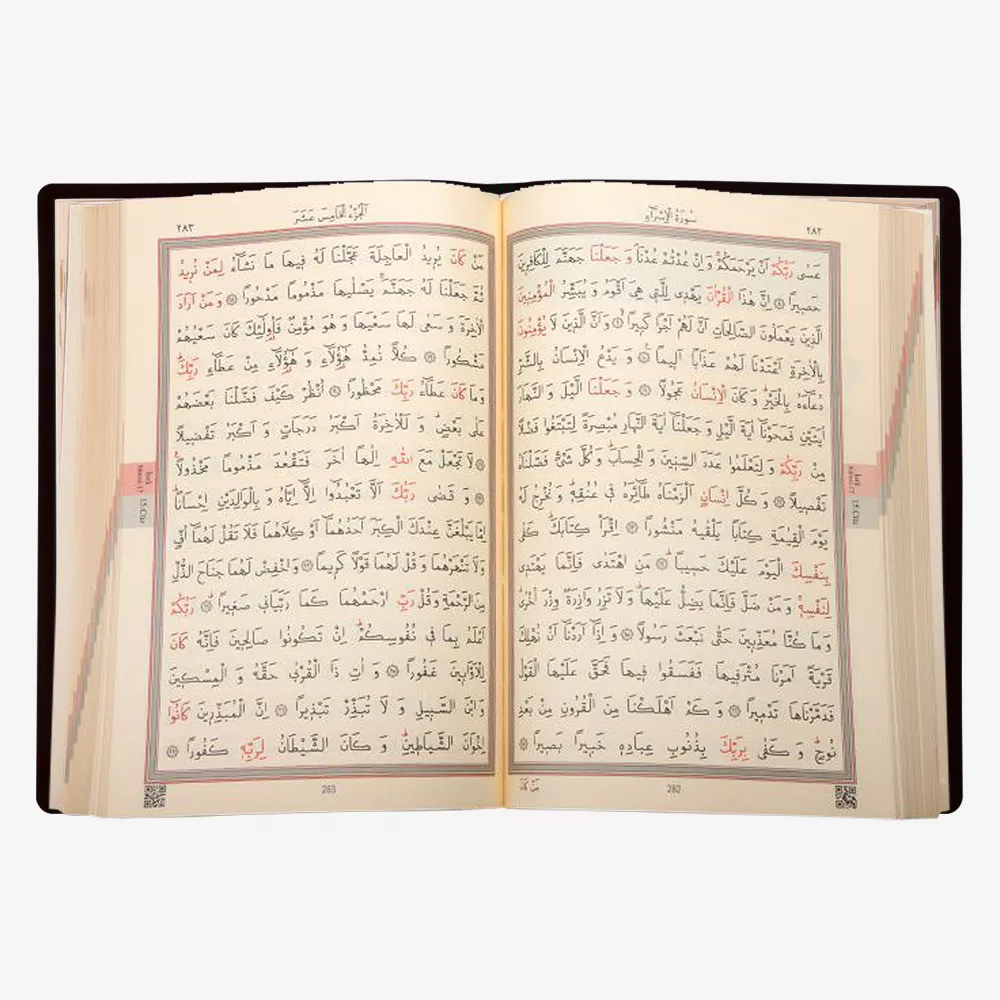 سُورَةُ الْاِسْرَاءِ
٢٨٢
عَسٰى رَبُّكُمْ اَنْ يَرْحَمَكُمْۚ وَاِنْ عُدْتُمْ عُدْنَاۢ وَجَعَلْنَا جَهَنَّمَ لِلْكَافِرٖينَ
حَصٖيرًا ﴿٨﴾ اِنَّ هٰذَا الْقُرْاٰنَ يَهْدٖى لِلَّتٖى هِىَ اَقْوَمُ وَيُبَشِّرُ الْمُؤْمِنٖينَ
الَّذٖينَ يَعْمَلُونَ الصَّالِحَاتِ اَنَّ لَهُمْ اَجْرًا كَبٖيرًا ﴿٩﴾ وَاَنَّ الَّذٖينَ لَا يُؤْمِنُونَ
بِالْاٰخِرَةِ اَعْتَدْنَا لَهُمْ عَذَابًا اَلٖيمًا ﴿١٠﴾ وَيَدْعُ الْاِنْسَانُ بِالشَّرِّ
دُعَاءَهُ بِالْخَيْرِۜ وَكَانَ الْاِنْسَانُ عَجُولًا ﴿١١﴾ وَجَعَلْنَا الَّيْلَ وَالنَّهَارَ
اٰيَتَيْنِ فَمَحَوْنَا اٰيَةَ الَّيْلِ وَجَعَلْنَا اٰيَةَ النَّهَارِ مُبْصِرَةً لِتَبْتَغُوا فَضْلًا
مِنْ رَبِّكُمْ وَلِتَعْلَمُوا عَدَدَ السِّنٖينَ وَالْحِسَابَۜ وَكُلَّ شَىْءٍ فَصَّلْنَاهُ
تَفْصٖيلًا ﴿١٢﴾ وَكُلَّ اِنْسَانٍ اَلْزَمْنَاهُ طَائِرَهُ فٖى عُنُقِهٖۜ وَنُخْرِجُ لَهُ
يَوْمَ الْقِيٰمَةِ كِتَابًا يَلْقٰيهُ مَنْشُورًا ﴿١٣﴾ اِقْرَأْ كِتَابَكَۜ كَفٰى
بِنَفْسِكَ الْيَوْمَ عَلَيْكَ حَسٖيبًاۜ ﴿١٤﴾ مَنِ اهْتَدٰى فَاِنَّمَا يَهْتَدٖى
لِنَفْسِهٖۚ وَمَنْ ضَلَّ فَاِنَّمَا يَضِلُّ عَلَيْهَاۜ وَلَا تَزِرُ وَازِرَةٌ وِزْرَ اُخْرٰىۜ
وَمَا كُنَّا مُعَذِّبٖينَ حَتّٰى نَبْعَثَ رَسُولًا ﴿١٥﴾ وَاِذَا اَرَدْنَا اَنْ نُهْلِكَ
قَرْيَةً اَمَرْنَا مُتْرَفٖيهَا فَفَسَقُوا فٖيهَا فَحَقَّ عَلَيْهَا الْقَوْلُ
فَدَمَّرْنَاهَا تَدْمٖيرًا ﴿١٦﴾ وَكَمْ اَهْلَكْنَا مِنَ الْقُرُونِ مِنْ بَعْدِ
نُوحٍۜ وَكَفٰى بِرَبِّكَ بِذُنُوبِ عِبَادِهٖ خَبٖيرًا بَصٖيرًا ﴿١٧﴾
مَنْ كَانَ
282
İsrâ
Sûresi 17
15.Cüz
اَلْجُزْءُ الْخَامِسَ عَشَرَ
٢٨٣
مَنْ كَانَ يُرٖيدُ الْعَاجِلَةَ عَجَّلْنَا لَهُ فٖيهَا مَا نَشَاءُ لِمَنْ نُرٖيدُ
ثُمَّ جَعَلْنَا لَهُ جَهَنَّمَۚ يَصْلٰيهَا مَذْمُومًا مَدْحُورًا ﴿١٨﴾ وَمَنْ اَرَادَ
الْاٰخِرَةَ وَسَعٰى لَهَا سَعْيَهَا وَهُوَ مُؤْمِنٌ فَاُو۬لٰئِكَ كَانَ سَعْيُهُمْ
مَشْكُورًا ﴿١٩﴾ كُلًّا نُمِدُّ هٰؤُلَاءِ وَهٰؤُلَاءِ مِنْ عَطَاءِ رَبِّكَۜ
وَمَا كَانَ عَطَاءُ رَبِّكَ مَحْظُورًا ﴿٢٠﴾ اُنْظُرْ كَيْفَ فَضَّلْنَا بَعْضَهُمْ
عَلٰى بَعْضٍۜ وَلَلْاٰخِرَةُ اَكْبَرُ دَرَجَاتٍ وَاَكْبَرُ تَفْضٖيلًا
﴿٢١﴾ لَا تَجْعَلْ مَعَ اللّٰهِ اِلٰهًا اٰخَرَ فَتَقْعُدَ مَذْمُومًا مَخْذُولًا
﴿٢٢﴾ وَقَضٰى رَبُّكَ اَلَّا تَعْبُدُوا اِلَّا اِيَّاهُ وَبِالْوَالِدَيْنِ اِحْسَانًاۜ
اِمَّا يَبْلُغَنَّ عِنْدَكَ الْكِبَرَ اَحَدُهُمَا اَوْ كِلَاهُمَا فَلَا تَقُلْ لَهُمَا اُفٍّ
وَلَا تَنْهَرْهُمَا وَقُلْ لَهُمَا قَوْلًا كَرٖيمًا ﴿٢٣﴾ وَاخْفِضْ لَهُمَا جَنَاحَ الذُّلِّ
مِنَ الرَّحْمَةِ وَقُلْ رَبِّ ارْحَمْهُمَا كَمَا رَبَّيَانٖى صَغٖيرًاۜ ﴿٢٤﴾ رَبُّكُمْ
اَعْلَمُ بِمَا فٖى نُفُوسِكُمْۜ اِنْ تَكُونُوا صَالِحٖينَ فَاِنَّهُ كَانَ
لِلْاَوَّابٖينَ غَفُورًا ﴿٢٥﴾ وَاٰتِ ذَا الْقُرْبٰى حَقَّهُ وَالْمِسْكٖينَ
وَابْنَ السَّبٖيلِ وَلَا تُبَذِّرْ تَبْذٖيرًا ﴿٢٦﴾ اِنَّ الْمُبَذِّرٖينَ كَانُوا
اِخْوَانَ الشَّيَاطٖينِۜ وَكَانَ الشَّيْطَانُ لِرَبِّهٖ كَفُورًا ﴿٢٧﴾
283
İsrâ
Sûresi 17
15.Cüz